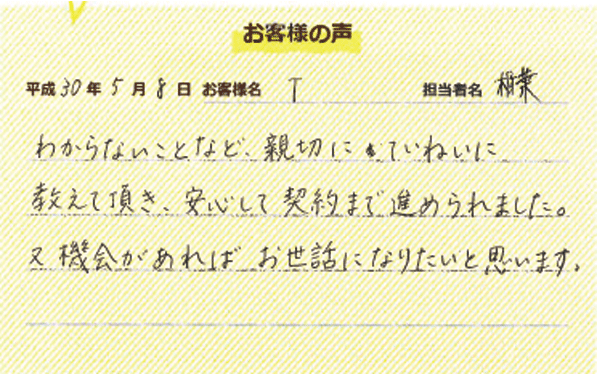 お客様の声
平成30年5月8日 お客様名 T 担当者名 相葉
わからないことなど、親切にていねいに
教えて頂き、安心して契約まで進められました。
又機会があれば お世話になりたいと思います。